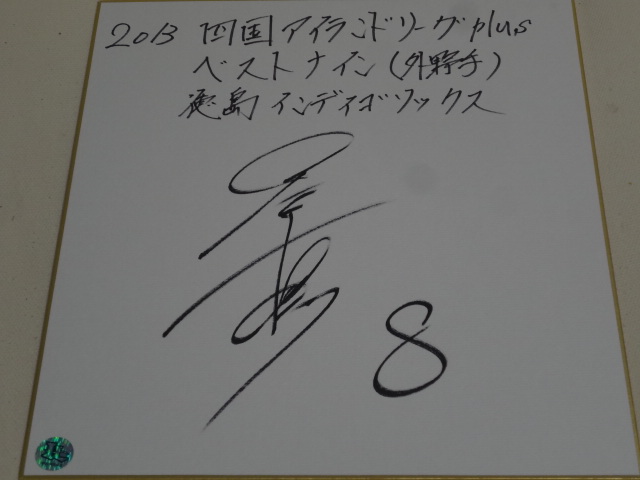 2013 四国アイランドリーグplus
ベストナイン(外野手)
徳島インディゴソックス
8